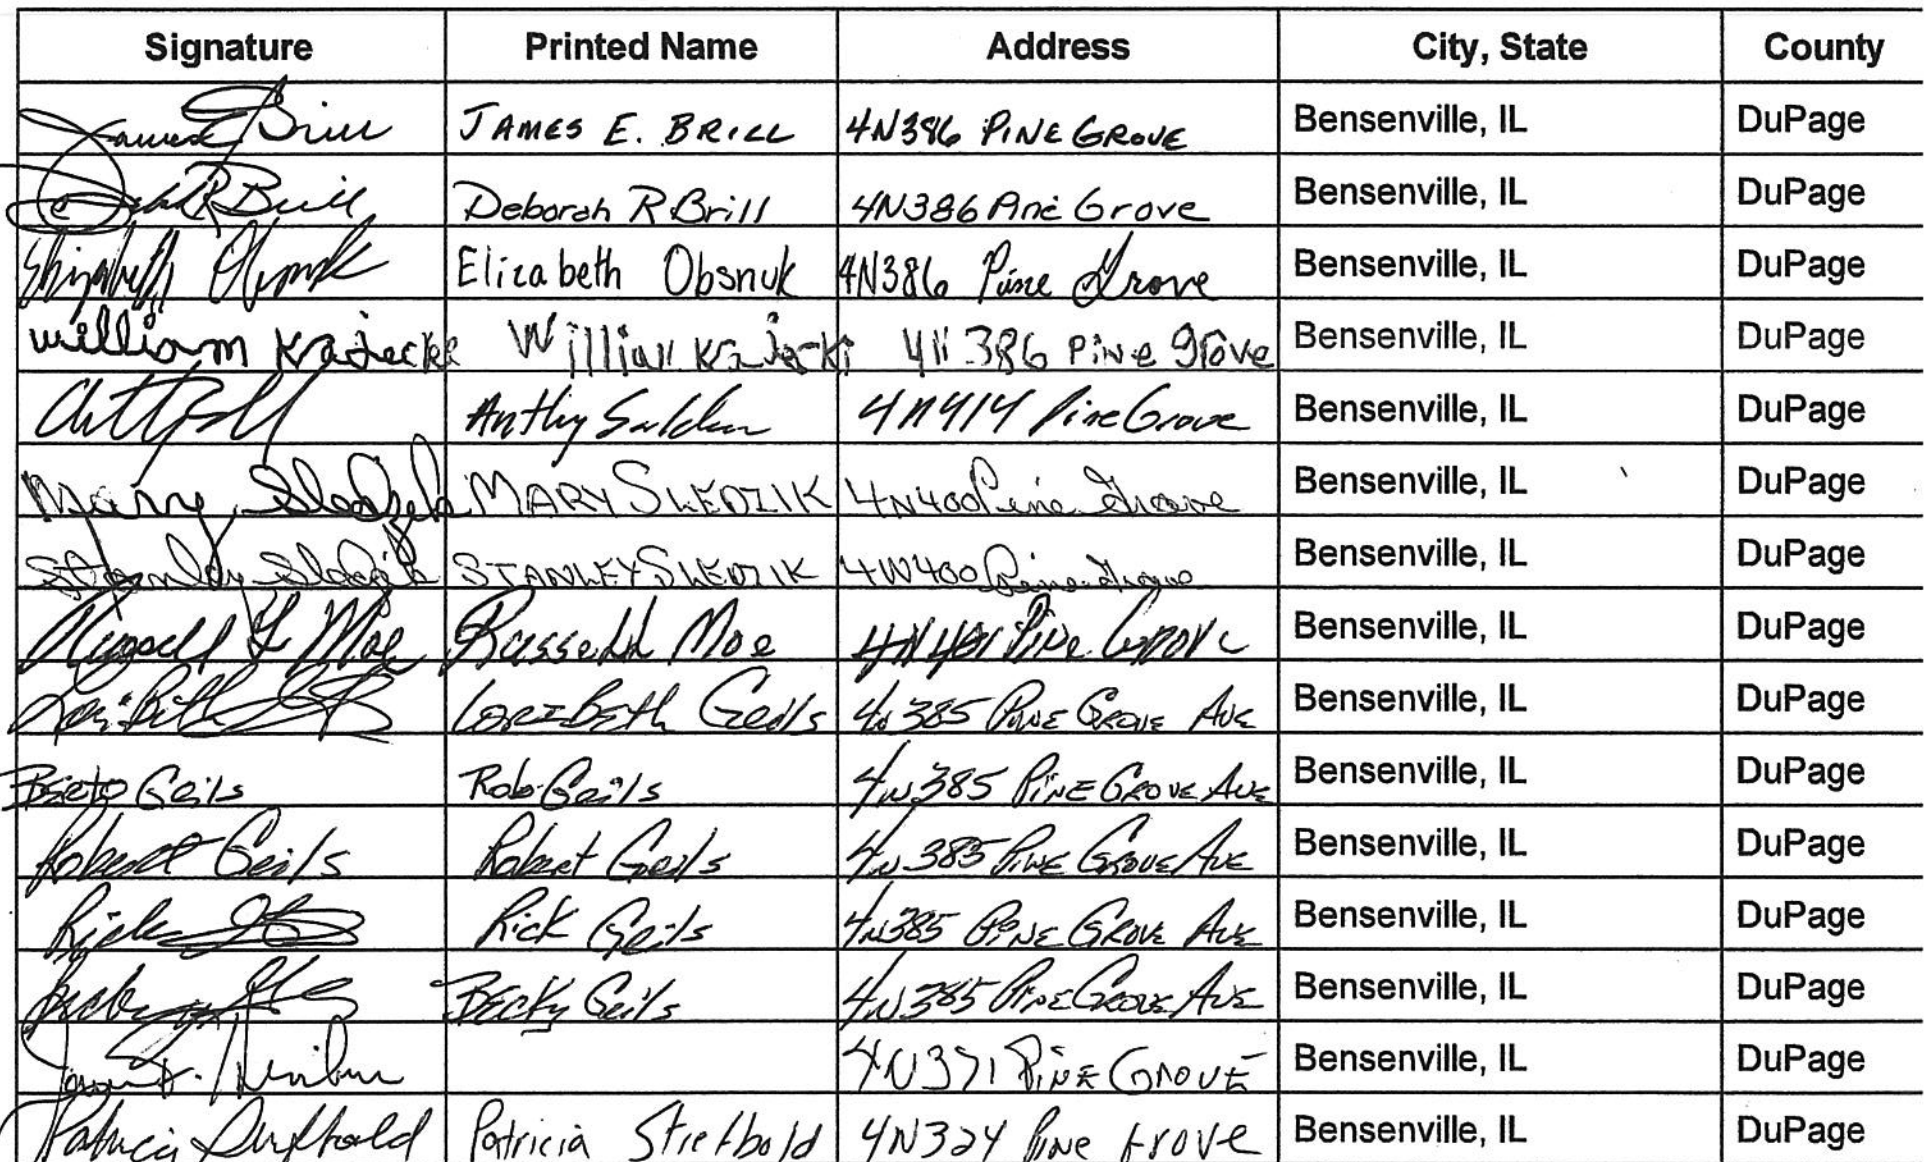 Signature Printed Name Address City, State County
James E Brill JAMES E. BRILL 4N386 PINE GROVE Bensenville, IL DuPage
Brill Deborah R Brill 4N386 Pine Grove Bensenville, IL DuPage
Elizabeth Obsnuk Elizabeth Obsnuk 4N386 Pine Grove Bensenville, IL DuPage
William Krajecki William Krajecki 4N386 Pine Grove Bensenville, IL DuPage
4N414 Pine Grove Bensenville, IL DuPage
Mary Sledzik MARY SLEDZIK 4N400 Pine Grove Bensenville, IL DuPage
Stanley Sledzik STANLEY SLEDZIK 4W400 Pine Grove Bensenville, IL DuPage
Russell Moe Russell Moe Pine Grove Bensenville, IL DuPage
Lori Beth Geils 4N385 PINE GROVE AVE Bensenville, IL DuPage
Geils Rob Geils 4N385 PINE GROVE AVE Bensenville, IL DuPage
Robert Geils Robert Geils 4N385 PINE GROVE AVE Bensenville, IL DuPage
Rick Rick Geils 4N385 PINE GROVE AVE Bensenville, IL DuPage
Becky Geils 4N385 PINE GROVE AVE Bensenville, IL DuPage
4N371 PINE GROVE Bensenville, IL DuPage
Patricia Patricia Strietbold 4N324 Pine Grove Bensenville, IL DuPage